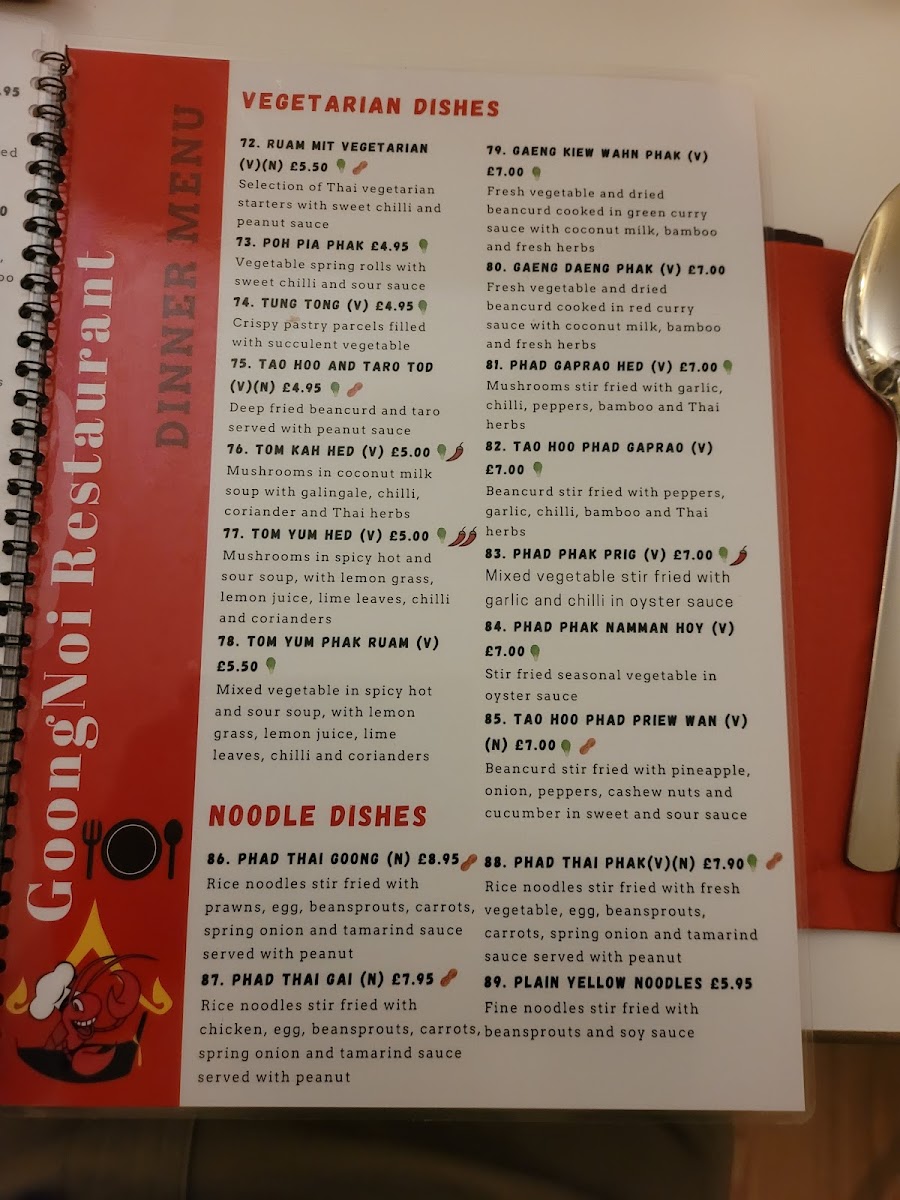 .95
ed
0
GoongNoi Restaurant
DINNER MENU
VEGETARIAN DISHES
72. RUAM MIT VEGETARIAN
(V)(N) £5.50
Selection of Thai vegetarian
starters with sweet chilli and
peanut sauce
73. POH PIA PHAK £4.95
Vegetable spring rolls with
sweet chilli and sour sauce
74. TUNG TONG (V) £4.95
Crispy pastry parcels filled
with succulent vegetable
75. TAO HOO AND TARO TOD
(V)(N) £4.95
Deep fried beancurd and taro
served with peanut sauce
76. TOM KAH HED (V) £5.00
Mushrooms in coconut milk
soup with galingale, chilli,
coriander and Thai herbs
77. TOM YUM HED (V) £5.00
Mushrooms in spicy hot and
sour soup, with lemon grass,
lemon juice, lime leaves, chilli
and corianders
78. TOM YUM PHAK RUAM (V)
£5.50
Mixed vegetable in spicy hot
and sour soup, with lemon
grass, lemon juice, lime
leaves, chilli and corianders
79. GAENG KIEW WAHN PHAK (V)
£7.00
Fresh vegetable and dried
beancurd cooked in green curry
sauce with coconut milk, bamboo
and fresh herbs
80. GAENG DAENG PHAK (V) £7.00
Fresh vegetable and dried
beancurd cooked in red curry
sauce with coconut milk, bamboo
and fresh herbs
81. PHAD GAPRAO HED (V) £7.00
Mushrooms stir fried with garlic,
chilli, peppers, bamboo and Thai
herbs
82. TAO HOO PHAD GAPRAO (V)
£7.00
Beancurd stir fried with peppers,
garlic, chilli, bamboo and Thai
herbs
83. PHAD PHAK PRIG (V) £7.00
Mixed vegetable stir fried with
garlic and chilli in oyster sauce
84. PHAD PHAK NAMMAN HOY (V)
£7.00
Stir fried seasonal vegetable in
oyster sauce
85. TAO HOO PHAD PRIEW WAN (V)
(N) £7.00
Beancurd stir fried with pineapple,
onion, peppers, cashew nuts and
cucumber in sweet and sour sauce
NOODLE DISHES
86. PHAD THAI GOONG (N) £8.95
Rice noodles stir fried with
prawns, egg, beansprouts, carrots,
spring onion and tamarind sauce
served with peanut
87. PHAD THAI GAI (N) £7.95
Rice noodles stir fried with
chicken, egg, beansprouts, carrots,
spring onion and tamarind sauce
served with peanut
88. PHAD THAI PHAK(V)(N) £7.90
Rice noodles stir fried with fresh
vegetable, egg, beansprouts,
carrots, spring onion and tamarind
sauce served with peanut
89. PLAIN YELLOW NOODLES £5.95
Fine noodles stir fried with
beansprouts and soy sauce